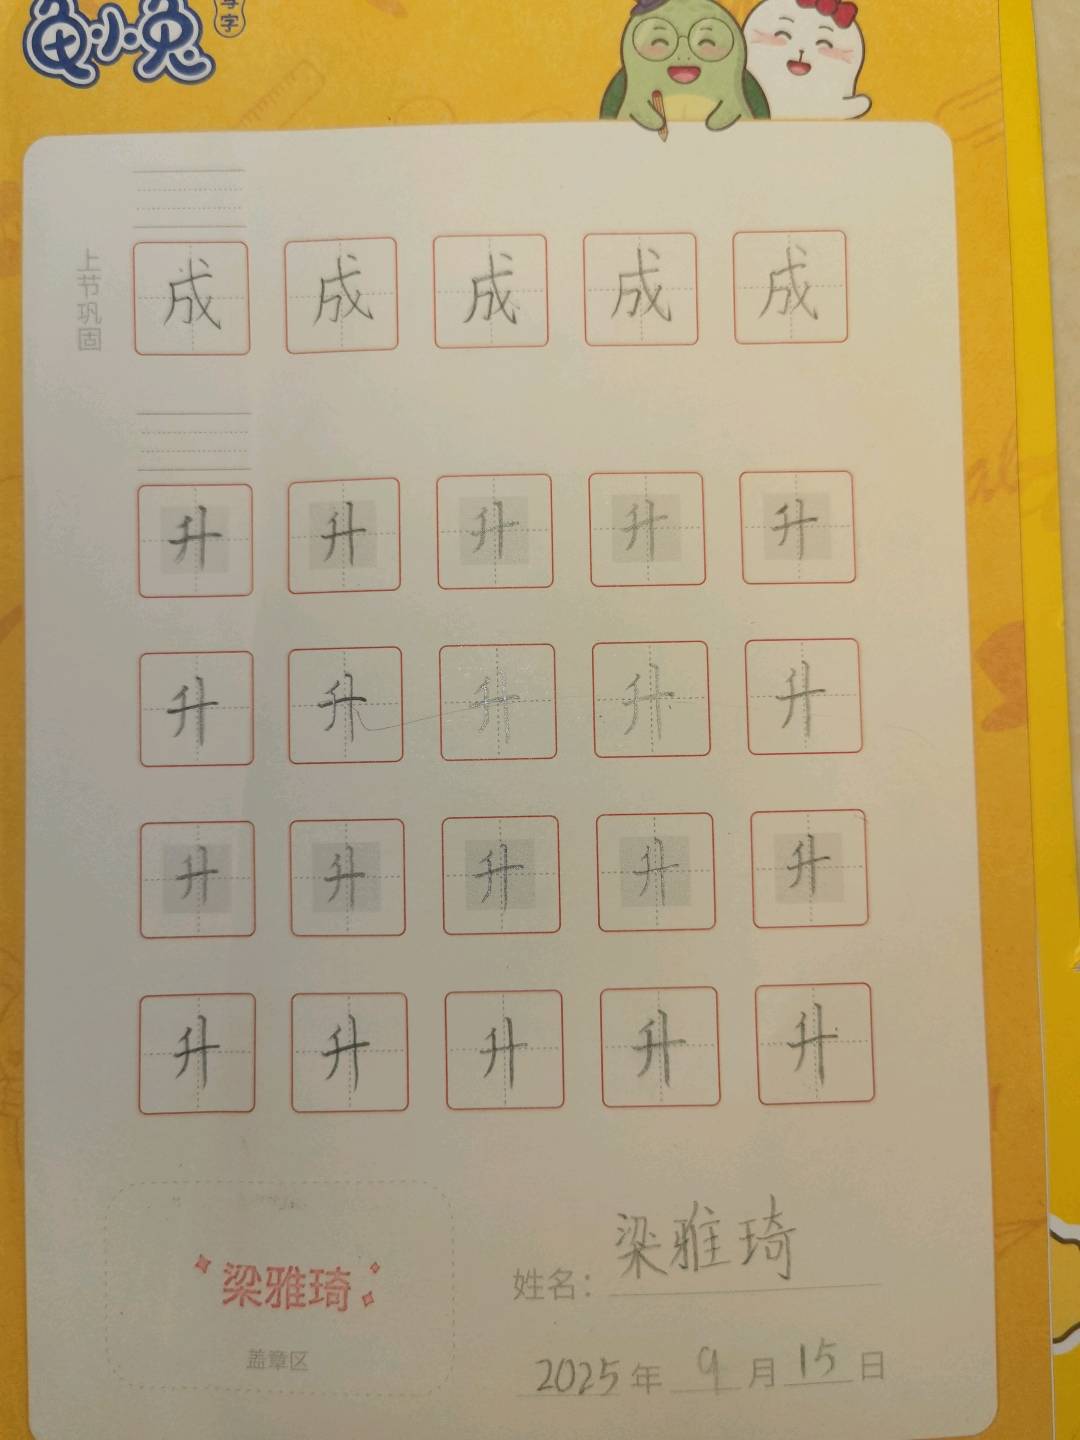 龟小兔
写字
上节巩固
成 成 成 成 成
升 升 升 升 升
升 升 升 升 升
升 升 升 升 升
升 升 升 升 升
梁雅琦
盖章区
姓名：梁雅琦
2025年9月15日